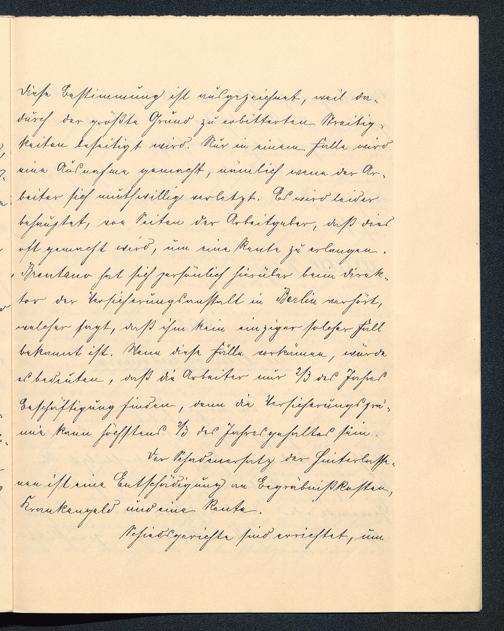 Diese Bestimmung ist ausgezeichnet, weil da-
durch der größte Grund zu erbitterten Streitig-
keiten beseitigt wird. Nur in einem Falle wird
eine Ausnahme gemacht, nämlich wenn der Ar-
beiter sich muthwillig verletzt. Es wird leider
behauptet, von Seiten der Arbeitgeber, daß dies
oft gemacht wird, um eine Rente zu erlangen.
Brentano hat sich persönlich hierüber beim Direk-
tor der Versicherungsanstalt in Berlin
welcher sagt, daß ihm kein einziger solcher Fall
bekannt ist. Wenn diese Fälle vorkämen, würde
es bedeuten, daß die Arbeiter nur 2/3 des Jahres
Beschäftigung finden, denn die Versicherungsprä-
mie kann höchstens 2/3 des Jahresgehaltes sein.
Der Schadenersatz der Hinterlasse-
nen ist eine Entschädigung an Begräbnißkosten,
Krankengeld und eine Rente.
Schiedsgerichte sind errichtet, um